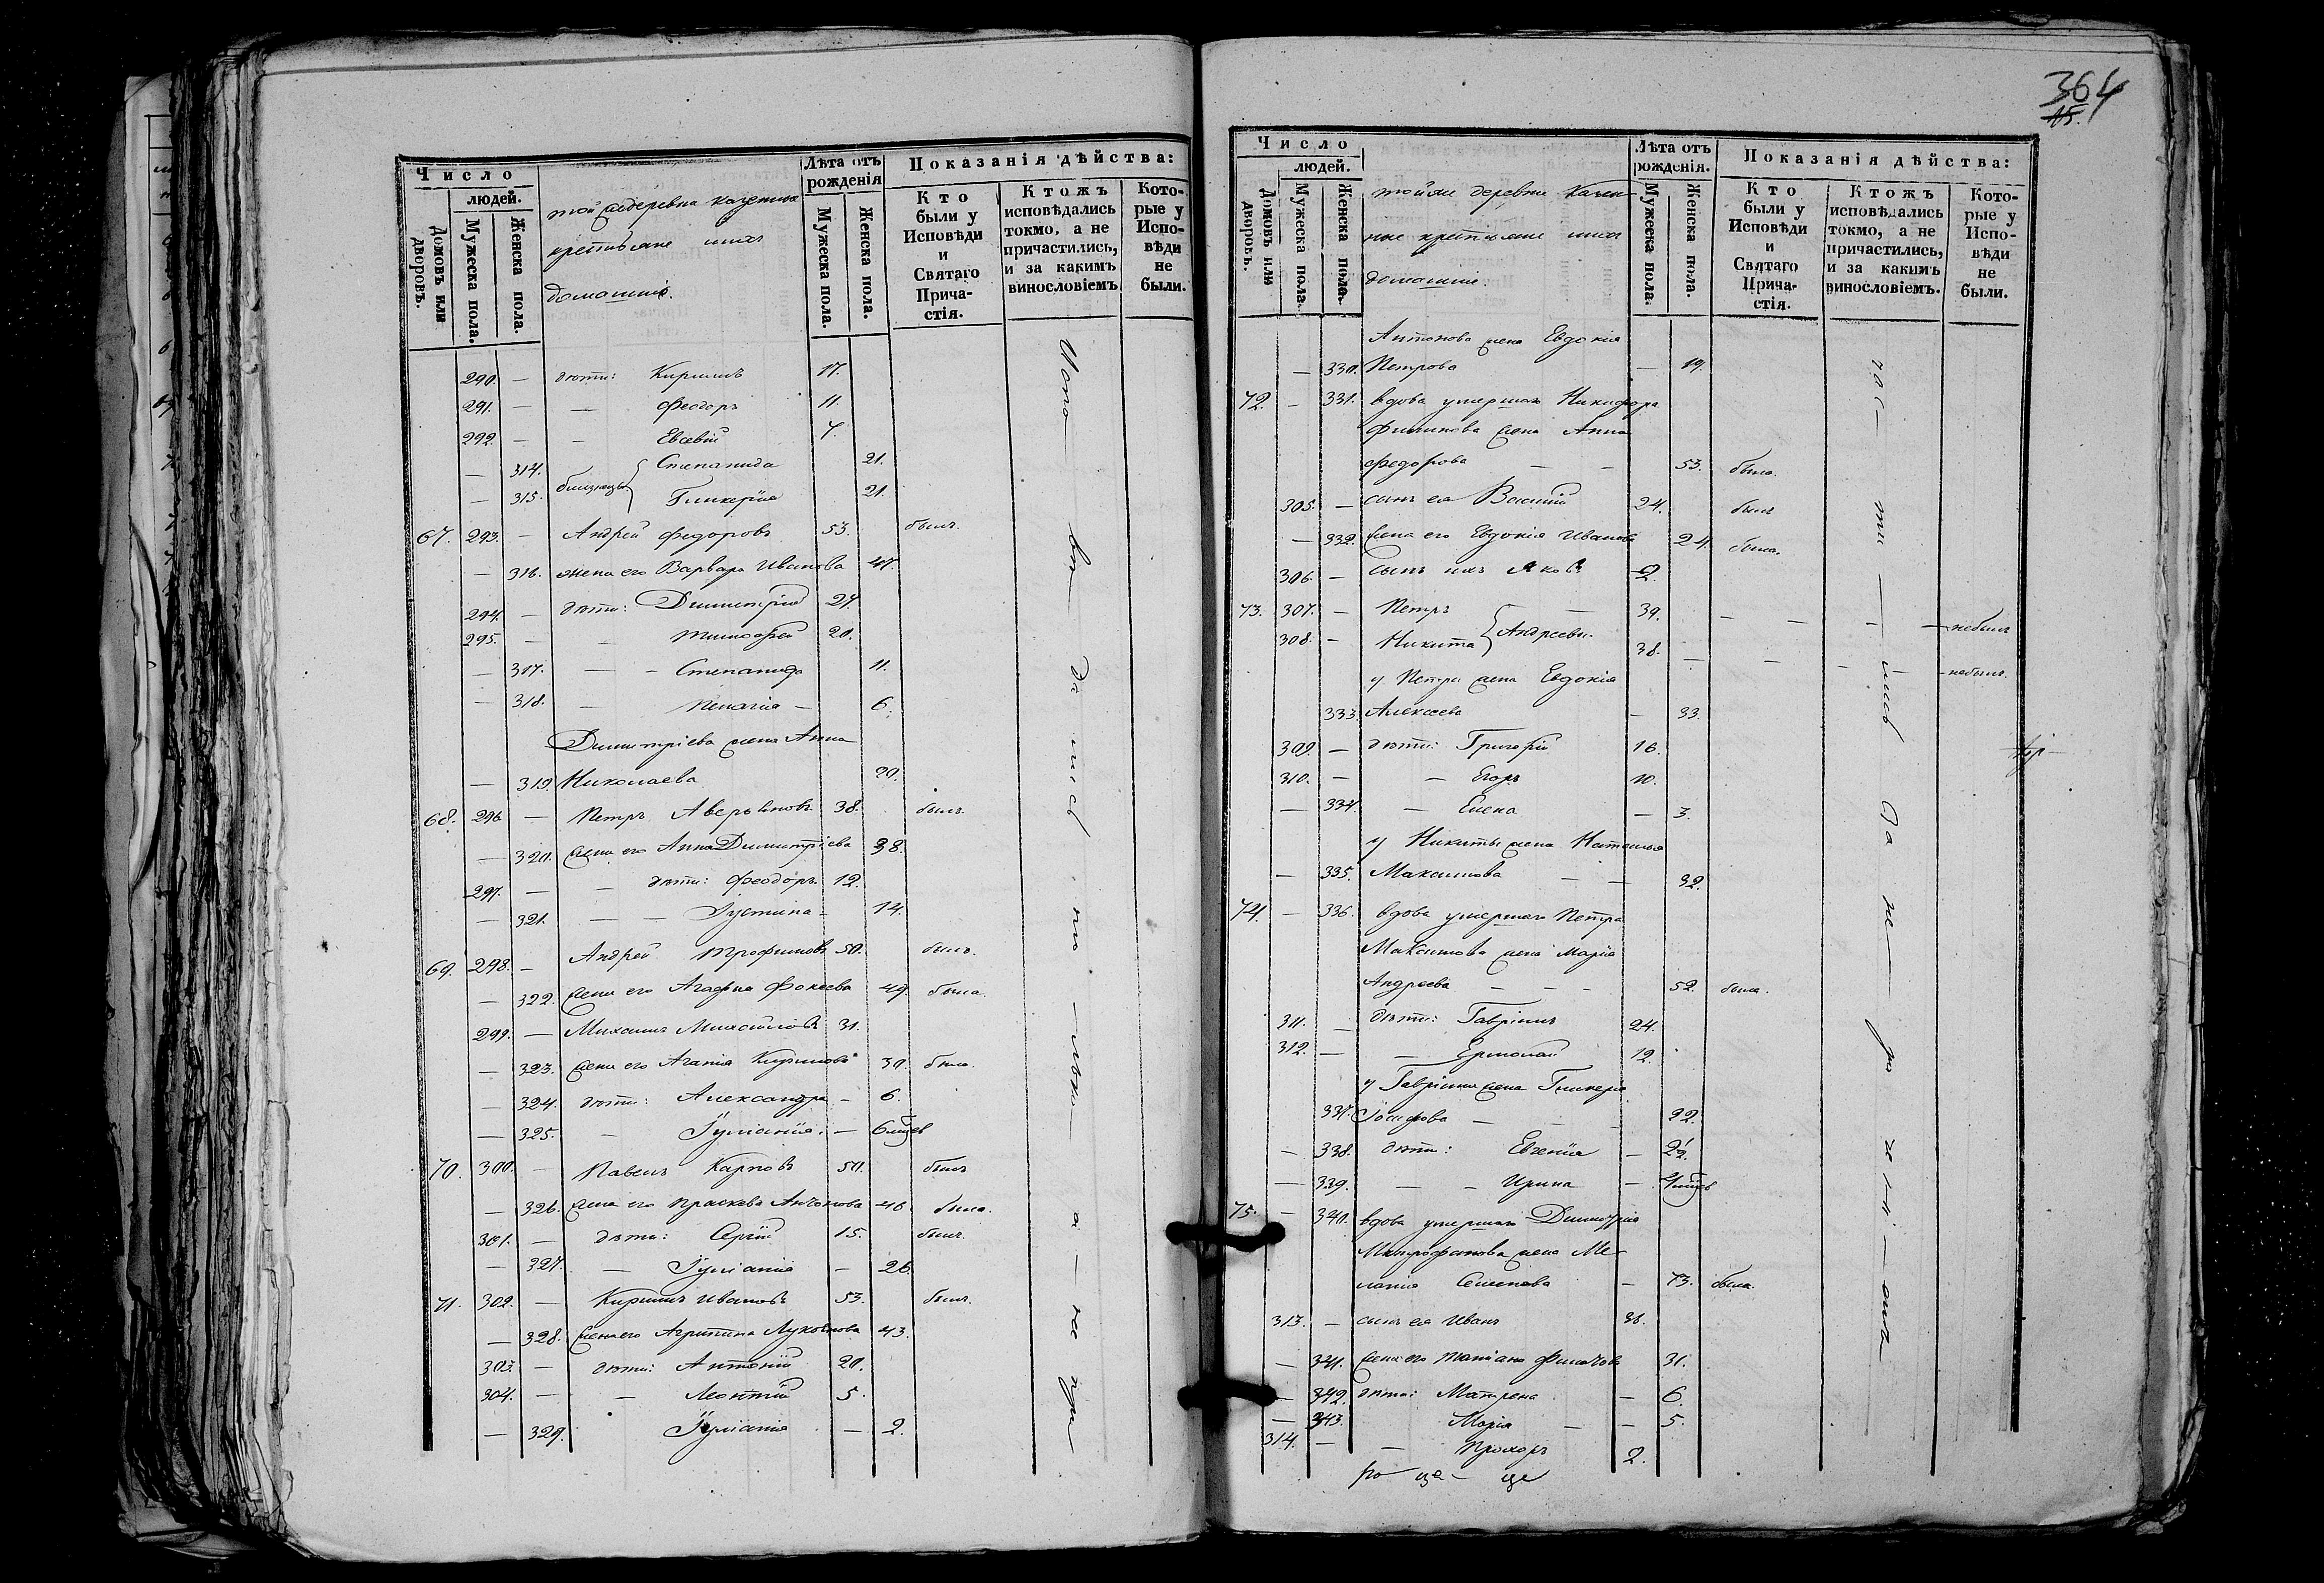 364
15.
Число
людей.
Домовъ или дворовъ.
Мужеска пола.
Женска пола.
той же деревни казенные
крестьяне ихъ
домашніе.
Лѣта отъ рожденія
Мужеска пола.
Женска пола.
Показанія дѣйства:
Кто были у Исповѣди и Святаго Причастія.
Ктожъ исповѣдались токмо, а не причастились, и за какимъ винословіемъ
Которые у Исповѣди не были.
290. — дѣти: Кириллъ 17.
291. — — Феодоръ 11.
292. — — Евсевій 7.
— 314. Степанида 21.
— 315. близнецы Гликерія 21.
67. 293. — Андрей Федоровъ 53. былъ.
— 316. жена его Варвара Иванова 47.
294. — дѣти: Димитрій 27.
295. — — Тимофей 20.
— 317. — — Степанида 11.
— 318. — Пелагія — 6.
Димитріева жена Анна
— 319. Николаева 20.
68. 296. — Петръ Аверьяновъ 38. былъ.
— 320. жена его Анна Димитріева 38.
297. — — дѣти: Феодоръ 12.
— 321. — — Іустина — 14.
69. 298. — Андрей Трофимовъ 50. былъ.
— 322. жена его Агафья Фокеева 49. была.
299. — Михаилъ Михайловъ 31.
— 323. жена его Агапія Кирилова 30. была.
— 324. дѣти: Александра — 6.
— 325. — Іуліанія. — 6 мцев
70. 300. — Павелъ Карповъ 50. былъ
— 326. жена его Праскева Антонова 46. была.
301. — дѣти: Сергій 15. былъ.
— 327. — Іуліанія — 26.
71. 302. — Кириллъ Ивановъ 53. былъ.
— 328. жена его Агрипина Лукоянова 43.
303. — дѣти: Антоній 20.
304. — — Леонтій 5.
— 329. Іуліанія — 2.
Испо — вѣ — да — лись
Число
людей.
Домовъ или дворовъ.
Мужеска пола.
Женска пола.
той же деревни казен
ные крестьяне ихъ
домашніе.
Лѣта отъ рожденія.
Мужеска пола.
Женска пола.
Показанія дѣйства:
Кто были у Исповѣди и Святаго Причастія.
Ктожъ исповѣдались токмо, а не причастились, и за какимъ винословіемъ.
Которые у Исповѣди не были.
Антонова жена Евдокія
— 330. Петрова — 19.
72. — 331. вдова умершаго Никифора
Филипова жена Анна
Федорова — — 53. была.
305. — сынъ ея Василій 24. былъ
— 332. жена его Евдокія Иванова 24. была.
306. — сынъ ихъ Яковъ 2.
73. 307. — Петръ — 39. — — — — не былъ
308. — Никита Андреевы. 38. — — — — не былъ.
у Петра жена Евдокія
333. Алексеева — 33.
309. — дѣти: Григорій 16.
310. — — Егоръ 10.
— 334. — Елена — 3.
у Никиты жена Наталья
— 335. Максимова — — 32.
74. — 336. вдова умершаго Петра
Максимова жена Марія
Андреева — — — 52. была.
311. — дѣти: Гавріилъ 24.
312. — — Ермолай 12.
у Гавріила жена Гликерія
337. Іосифова — — 22.
— 338. дѣти: Евгенія — 2½.
— 339. — — Ирина — 4 мцев
75. — 340. вдова умершаго Димитрія
Митрофанова жена Ме-
ланія Семенова — 73. была.
313. — сынъ ея Иванъ 38.
— 341. жена его Татіана Филатова 31.
— 342. дѣти: Матрена — 6.
— 343. Марія — — 5.
314. — — Прохоръ 2.